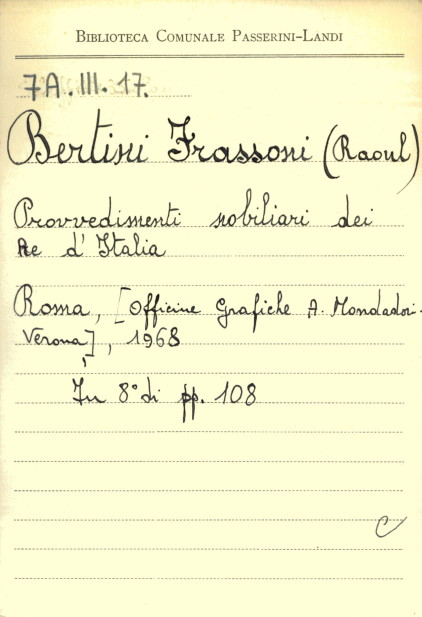 BIBLIOTECA COMUNALE PASSERINI-LANDI
7A.III.17.
Bertini Frassoni (Raoul)
Provvedimenti nobiliari dei
Re d'Italia
Roma, [Officine Grafiche A. Mondadori-
Verona,], 1968
In 8° di pp. 108
C